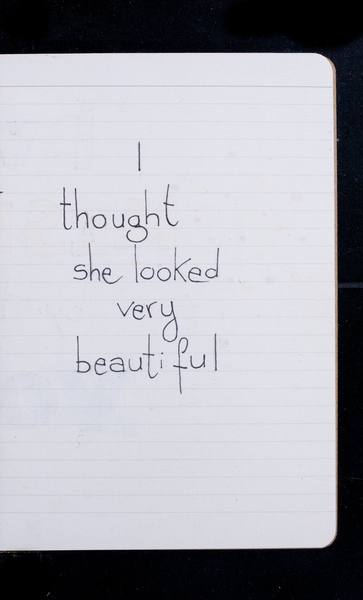 I
thought
she looked
very
beautiful